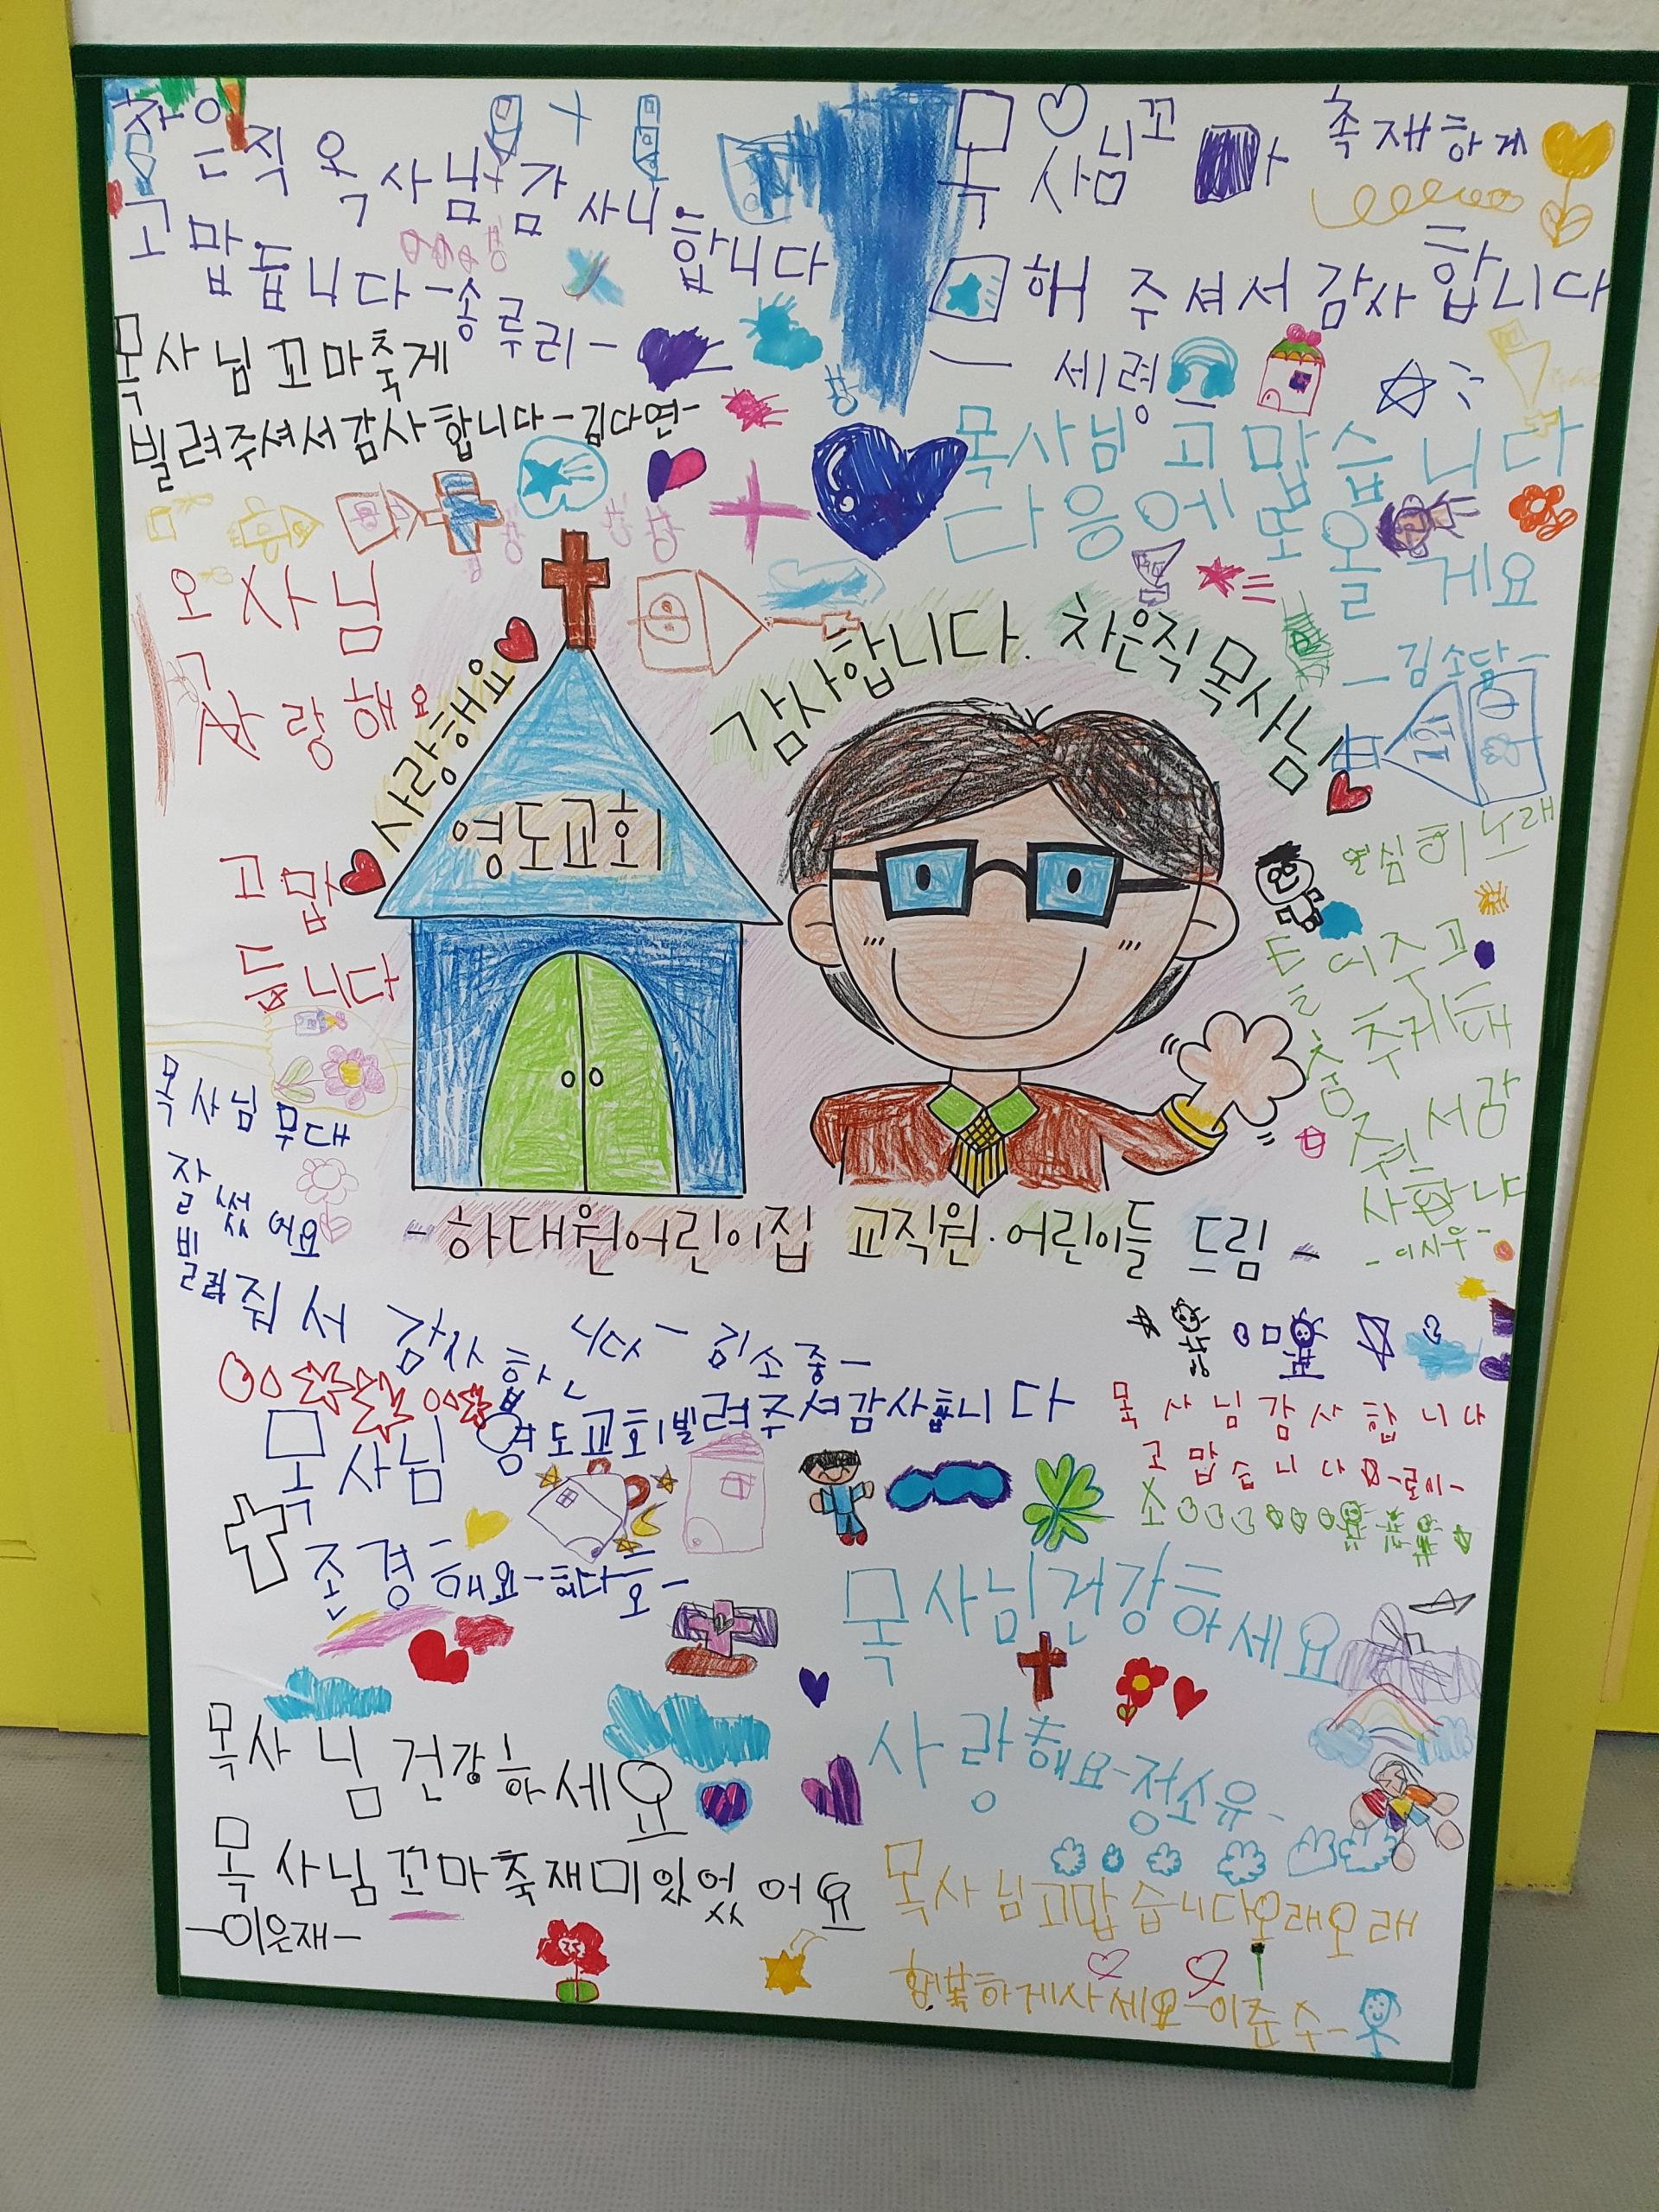 차은직 목사님 감사합니다
고맙습니다 - 송루리 -
목사님 꼬마축제하게
해주셔서 감사합니다
- 세령 -
목사님 꼬마축게
빌려주셔서감사합니다 - 김다연 -
목사님 고맙습니다
다음에 또 올게요
- 김소담 -
목사님
사랑해요
고맙
습니다
사랑해요
영도교회
감사합니다. 차은직 목사님
열심히 노래
- 이시우 -
목사님 무대
잘 썼어요
빌려줘서 감사합니다 - 김소중 -
- 하대원어린이집 교직원·어린이들 드림 -
목사님 영도교회빌려주셔감사합니다
존경해요 - 허다호 -
목사님 감사합니다
고맙습니다 - 로이 -
목사님 건강하세요
사랑해요 - 정소유 -
목사님 건강하세요
목사님 꼬마축재미있었어요
- 이은재 -
목사님고맙습니다오래오래
행복하게사세요 - 이준수 -